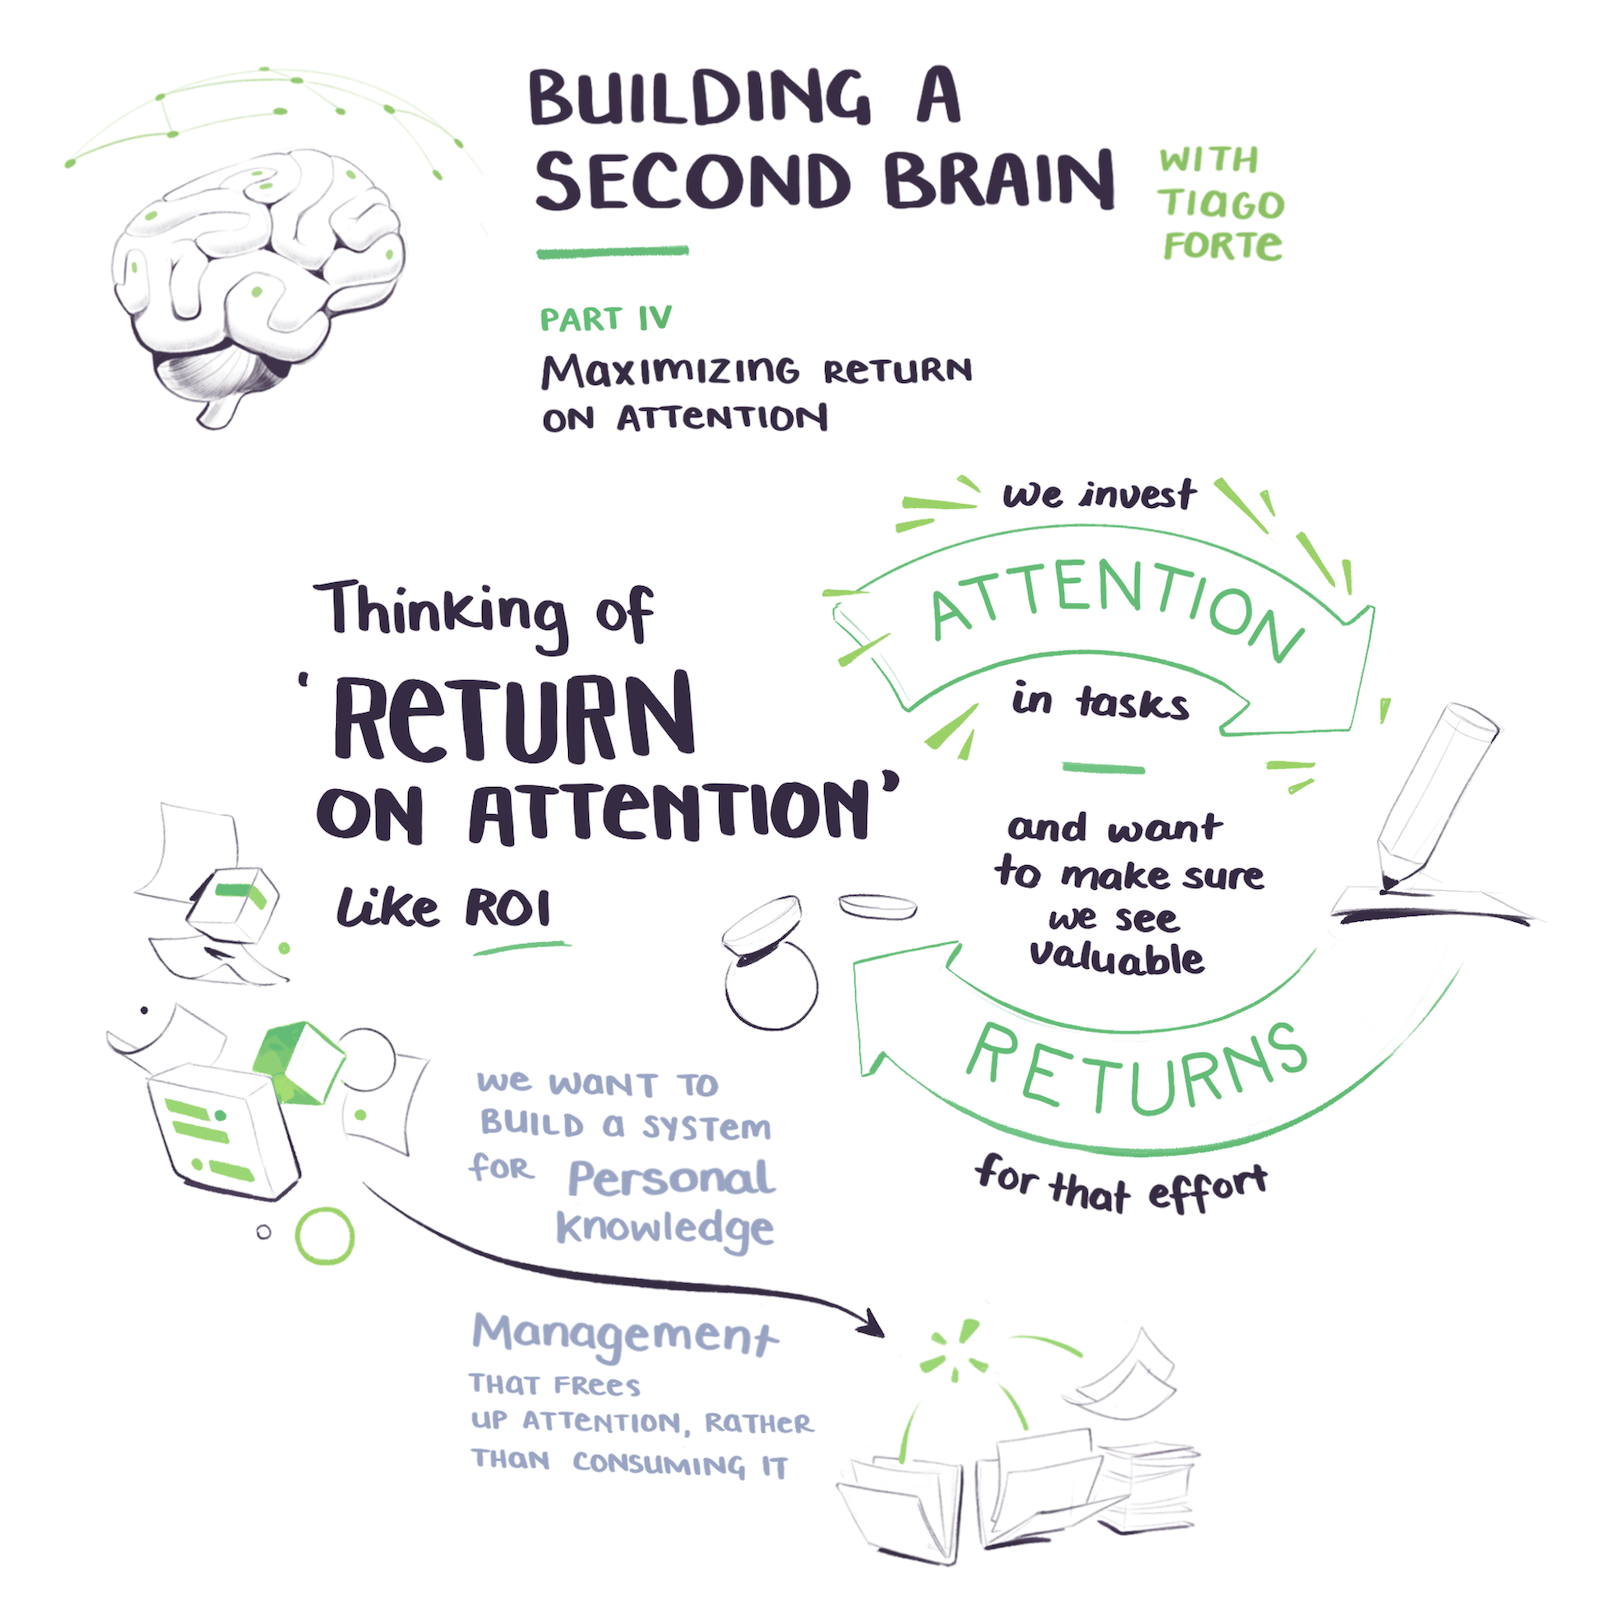 BUILDING A
SECOND BRAIN
WITH
TIAGO
FORTE
PART IV
MAXIMIZING RETURN
ON ATTENTION
Thinking of
'RETURN
ON ATTENTION'
like ROI
we invest
ATTENTION
in tasks
and want
to make sure
we see
valuable
RETURNS
for that effort
WE WANT TO
BUILD A SYSTEM
FOR Personal
Knowledge
Management
THAT FREES
UP ATTENTION, RATHER
THAN CONSUMING IT